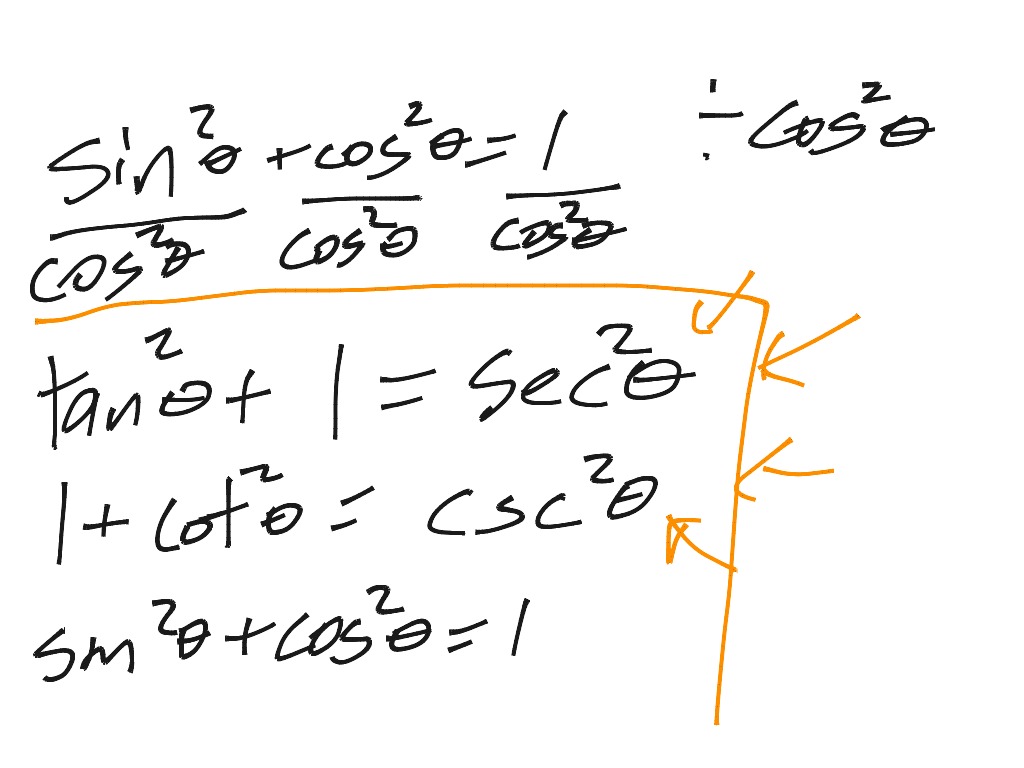 sin²θ + cos²θ = 1 ÷ cos²θ
cos²θ cos²θ cos²θ
tan²θ + 1 = sec²θ
1 + cot²θ = csc²θ
sin²θ + cos²θ = 1